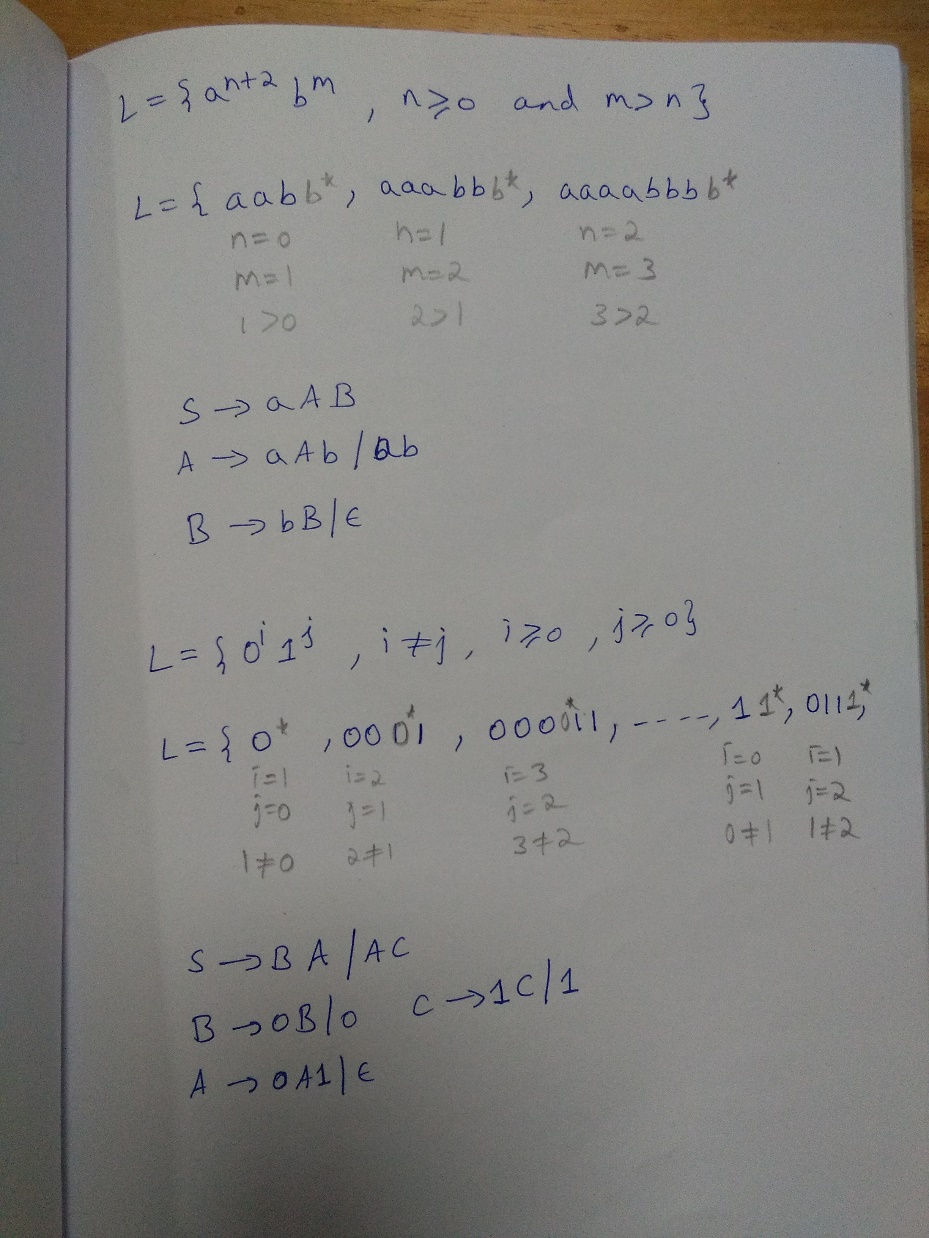 L = { a^{n+2} b^m , n ≥ 0 and m > n }
L = { aabb*, aaabbb*, aaaabbbb*
n=0 n=1 n=2
m=1 m=2 m=3
1>0 2>1 3>2
S → aAB
A → aAb / ab
B → bB / ϵ
L = { 0^i 1^j , i ≠ j , i ≥ 0 , j ≥ 0 }
L = { 0* , 000*1 , 0000*11 , ----, 11*, 0111*,
i=1 i=2 i=3 i=0 i=1
j=0 j=1 j=2 j=1 j=2
1≠0 2≠1 3≠2 0≠1 1≠2
S → BA / AC
B → 0B / 0 C → 1C / 1
A → 0A1 / ϵ